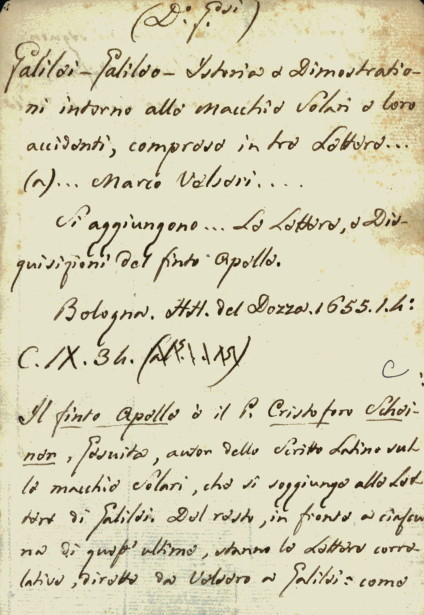 (D.º G.si)
Galilei - Galileo - Istoria e Dimostratio-
ni intorno alle Macchie Solari e loro
accidenti, comprese in tre Lettere...
(a)... Marco Velseri....
Si aggiungono... Le Lettere, e Dis-
quisizioni del finto Apelle.
Bologna. HH. del Dozza. 1655. 1. 4:
C. IX. 34.
C
Il finto Apelle è il P. Cristoforo Schei-
ner, Gesuita, autor dello Scritto Latino sul-
le macchie Solari, che si soggiunge alle Let-
tere di Galilei. Del resto, in fronte a ciascu-
na di quest' ultime, stanno le Lettere corre-
lative, dirette da Velsero a Galilei = come